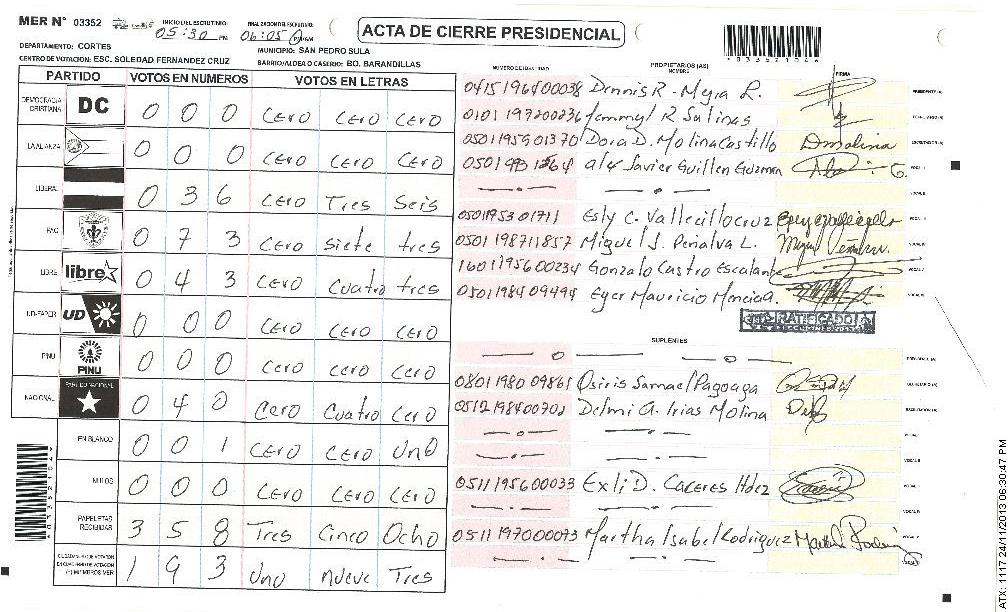 MER N° 03352
INICIO DEL ESCRUTINIO: 05:30 PM
FINALIZACION DEL ESCRUTINIO: 06:05
ACTA DE CIERRE PRESIDENCIAL
DEPARTAMENTO: CORTES
MUNICIPIO: SAN PEDRO SULA
CENTRO DE VOTACION: ESC. SOLEDAD FERNANDEZ CRUZ
BARRIO/ALDEA O CASERIO: BO. BARANDILLAS
PARTIDO VOTOS EN NUMEROS VOTOS EN LETRAS
DEMOCRACIA CRISTIANA DC 0 0 0 Cero Cero Cero
LA ALIANZA 0 0 0 Cero Cero Cero
LIBERAL 0 3 6 Cero Tres Seis
PAC 0 7 3 Cero siete tres
LIBRE libre 0 4 3 Cero Cuatro tres
UD-FAPER UD 0 0 0 Cero Cero Cero
PINU PINU 0 0 0 Cero Cero Cero
NACIONAL PARTIDO NACIONAL 0 4 0 Cero Cuatro Cero
EN BLANCO 0 0 1 Cero Cero Uno
NULOS 0 0 0 Cero Cero Cero
PAPELETAS RECIBIDAS 3 5 8 Tres Cinco Ocho
1 9 3 Uno nueve Tres
NUMERO DE IDENTIDAD PROPIETARIOS (AS) NOMBRE FIRMA
0415196400038 Dennis R. Mejia L.
0101197200236 R Salinas
0501195901370 Dora D. Molina Castillo DMolina
Alex Javier Guillen Guzman
0501195301711 Esly C. Vallecillo cruz
0501198711857 Miguel J. Peñalva L.
1601195600234 Gonzalo Castro Escalante
0501198409494 Eyer Mauricio
RATIFICADO
SUPLENTES
0801198009861 Osiris Samael Pagoaga
0512198400702 Delmi A. Irias Molina
0511195600033 Exli D. Caceres Hdez
0511197000073 Martha Isabel Rodriguez
ATX: 1117 24/11/2013 06:30:47 PM